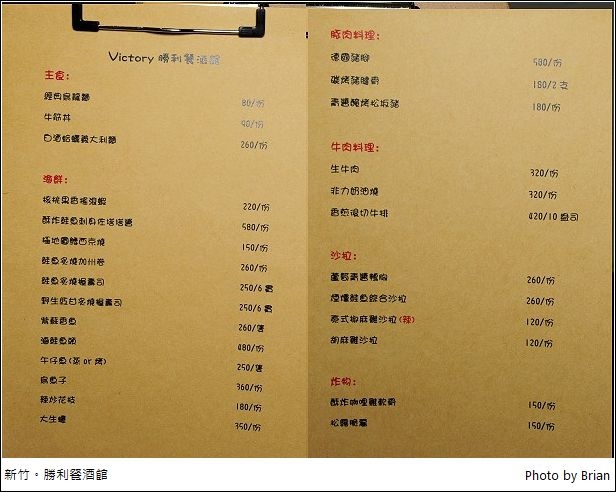 Victory 勝利餐酒館
主食:
經典烏龍麵 80/份
牛筋丼 90/份
白酒蛤蠣義大利麵 260/份
海鮮:
核桃果香搖滾蝦 220/份
酥炸鮭魚刺身佐塔塔醬 580/份
極地圓鱈西京燒 150/份
鮭魚炙燒加州卷 260/份
鮭魚炙燒握壽司 250/6貫
野生比目炙燒握壽司 250/6貫
紫蘇香魚 260/隻
海鮮魚頭 480/份
午仔魚(蒸 or 烤) 250/隻
烏魚子 360/份
辣炒花枝 180/份
大生蠔 350/份
豚肉料理:
德國豬腳 580/份
碳烤豬腱骨 180/2支
青醬醃烤松坂豬 180/份
牛肉料理:
生牛肉 320/份
菲力奶油燒 320/份
香煎後切牛排 420/10盎司
沙拉:
蘆筍青醬鴨胸 260/份
煙燻鮭魚綜合沙拉 260/份
泰式椒麻雞沙拉(辣) 120/份
胡麻雞沙拉 120/份
炸物:
酥炸咖哩雞軟骨 150/份
松露脆薯 150/份
新竹。勝利餐酒館
Photo by Brian